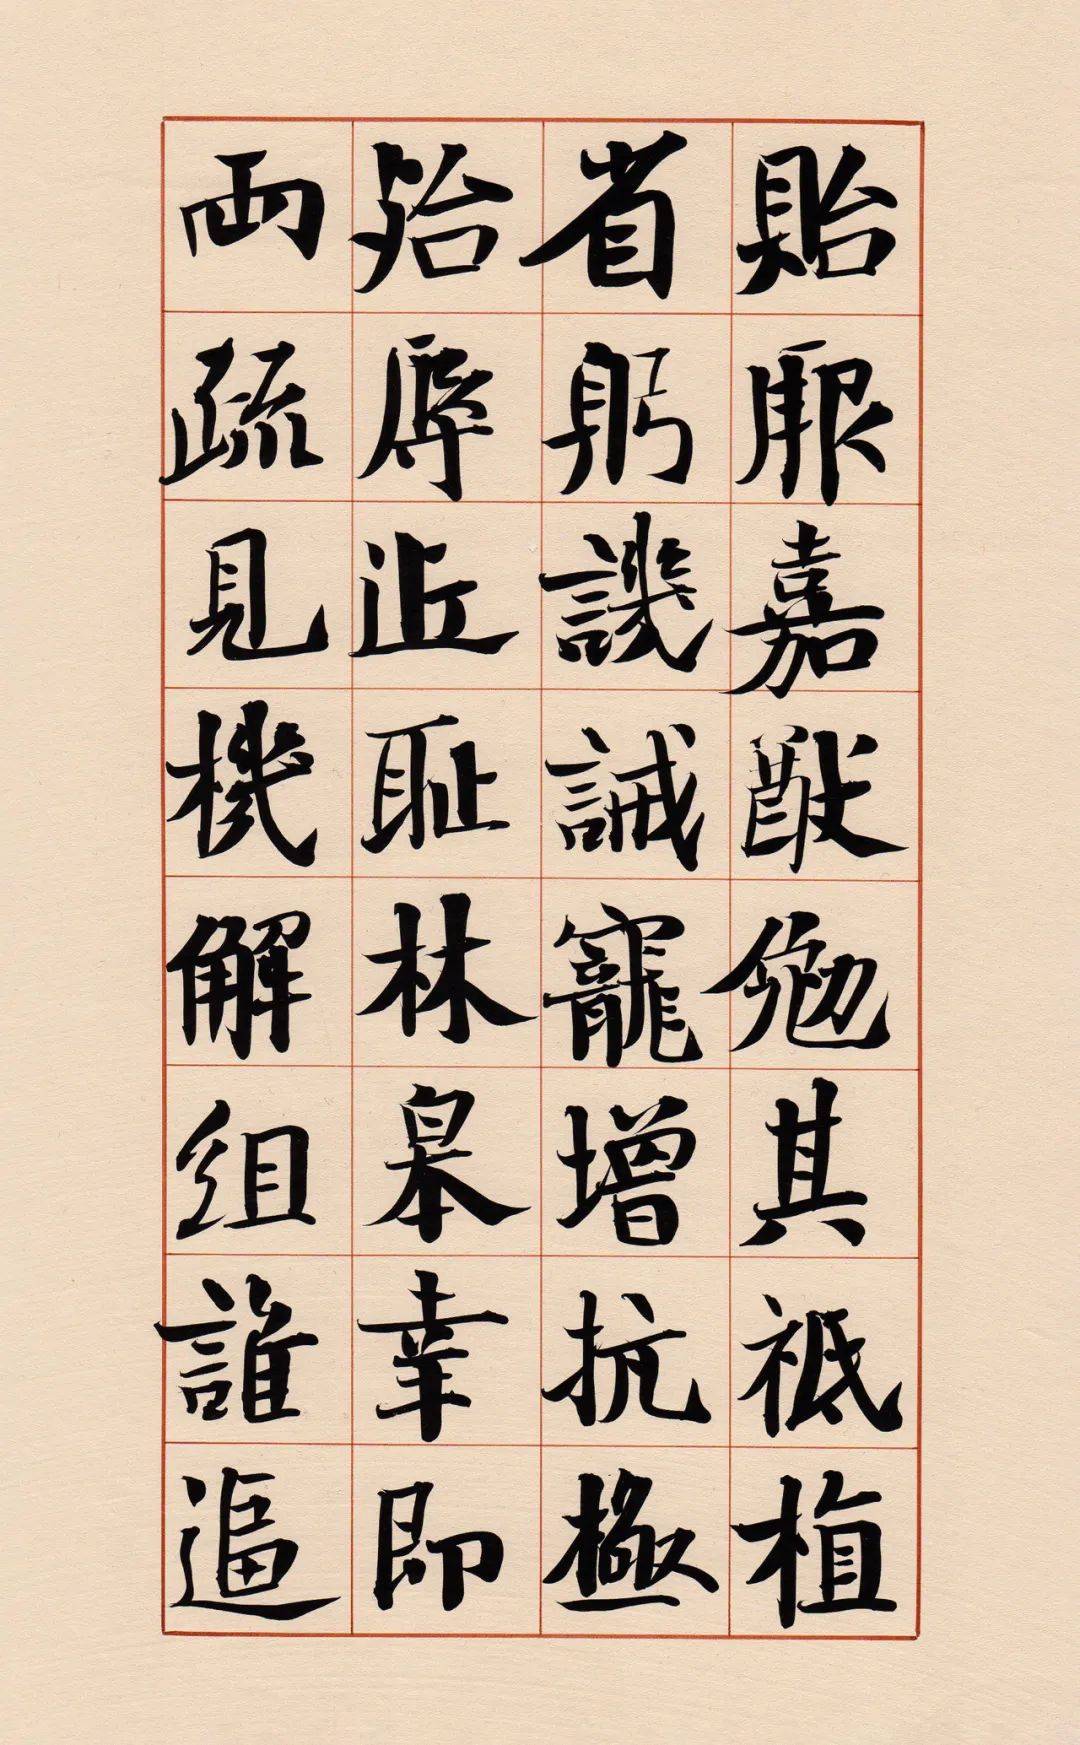 貽厥嘉猷勉其祗植
省躬譏誡寵增抗極
殆辱近耻林皋幸即
兩疏見機解組誰逼